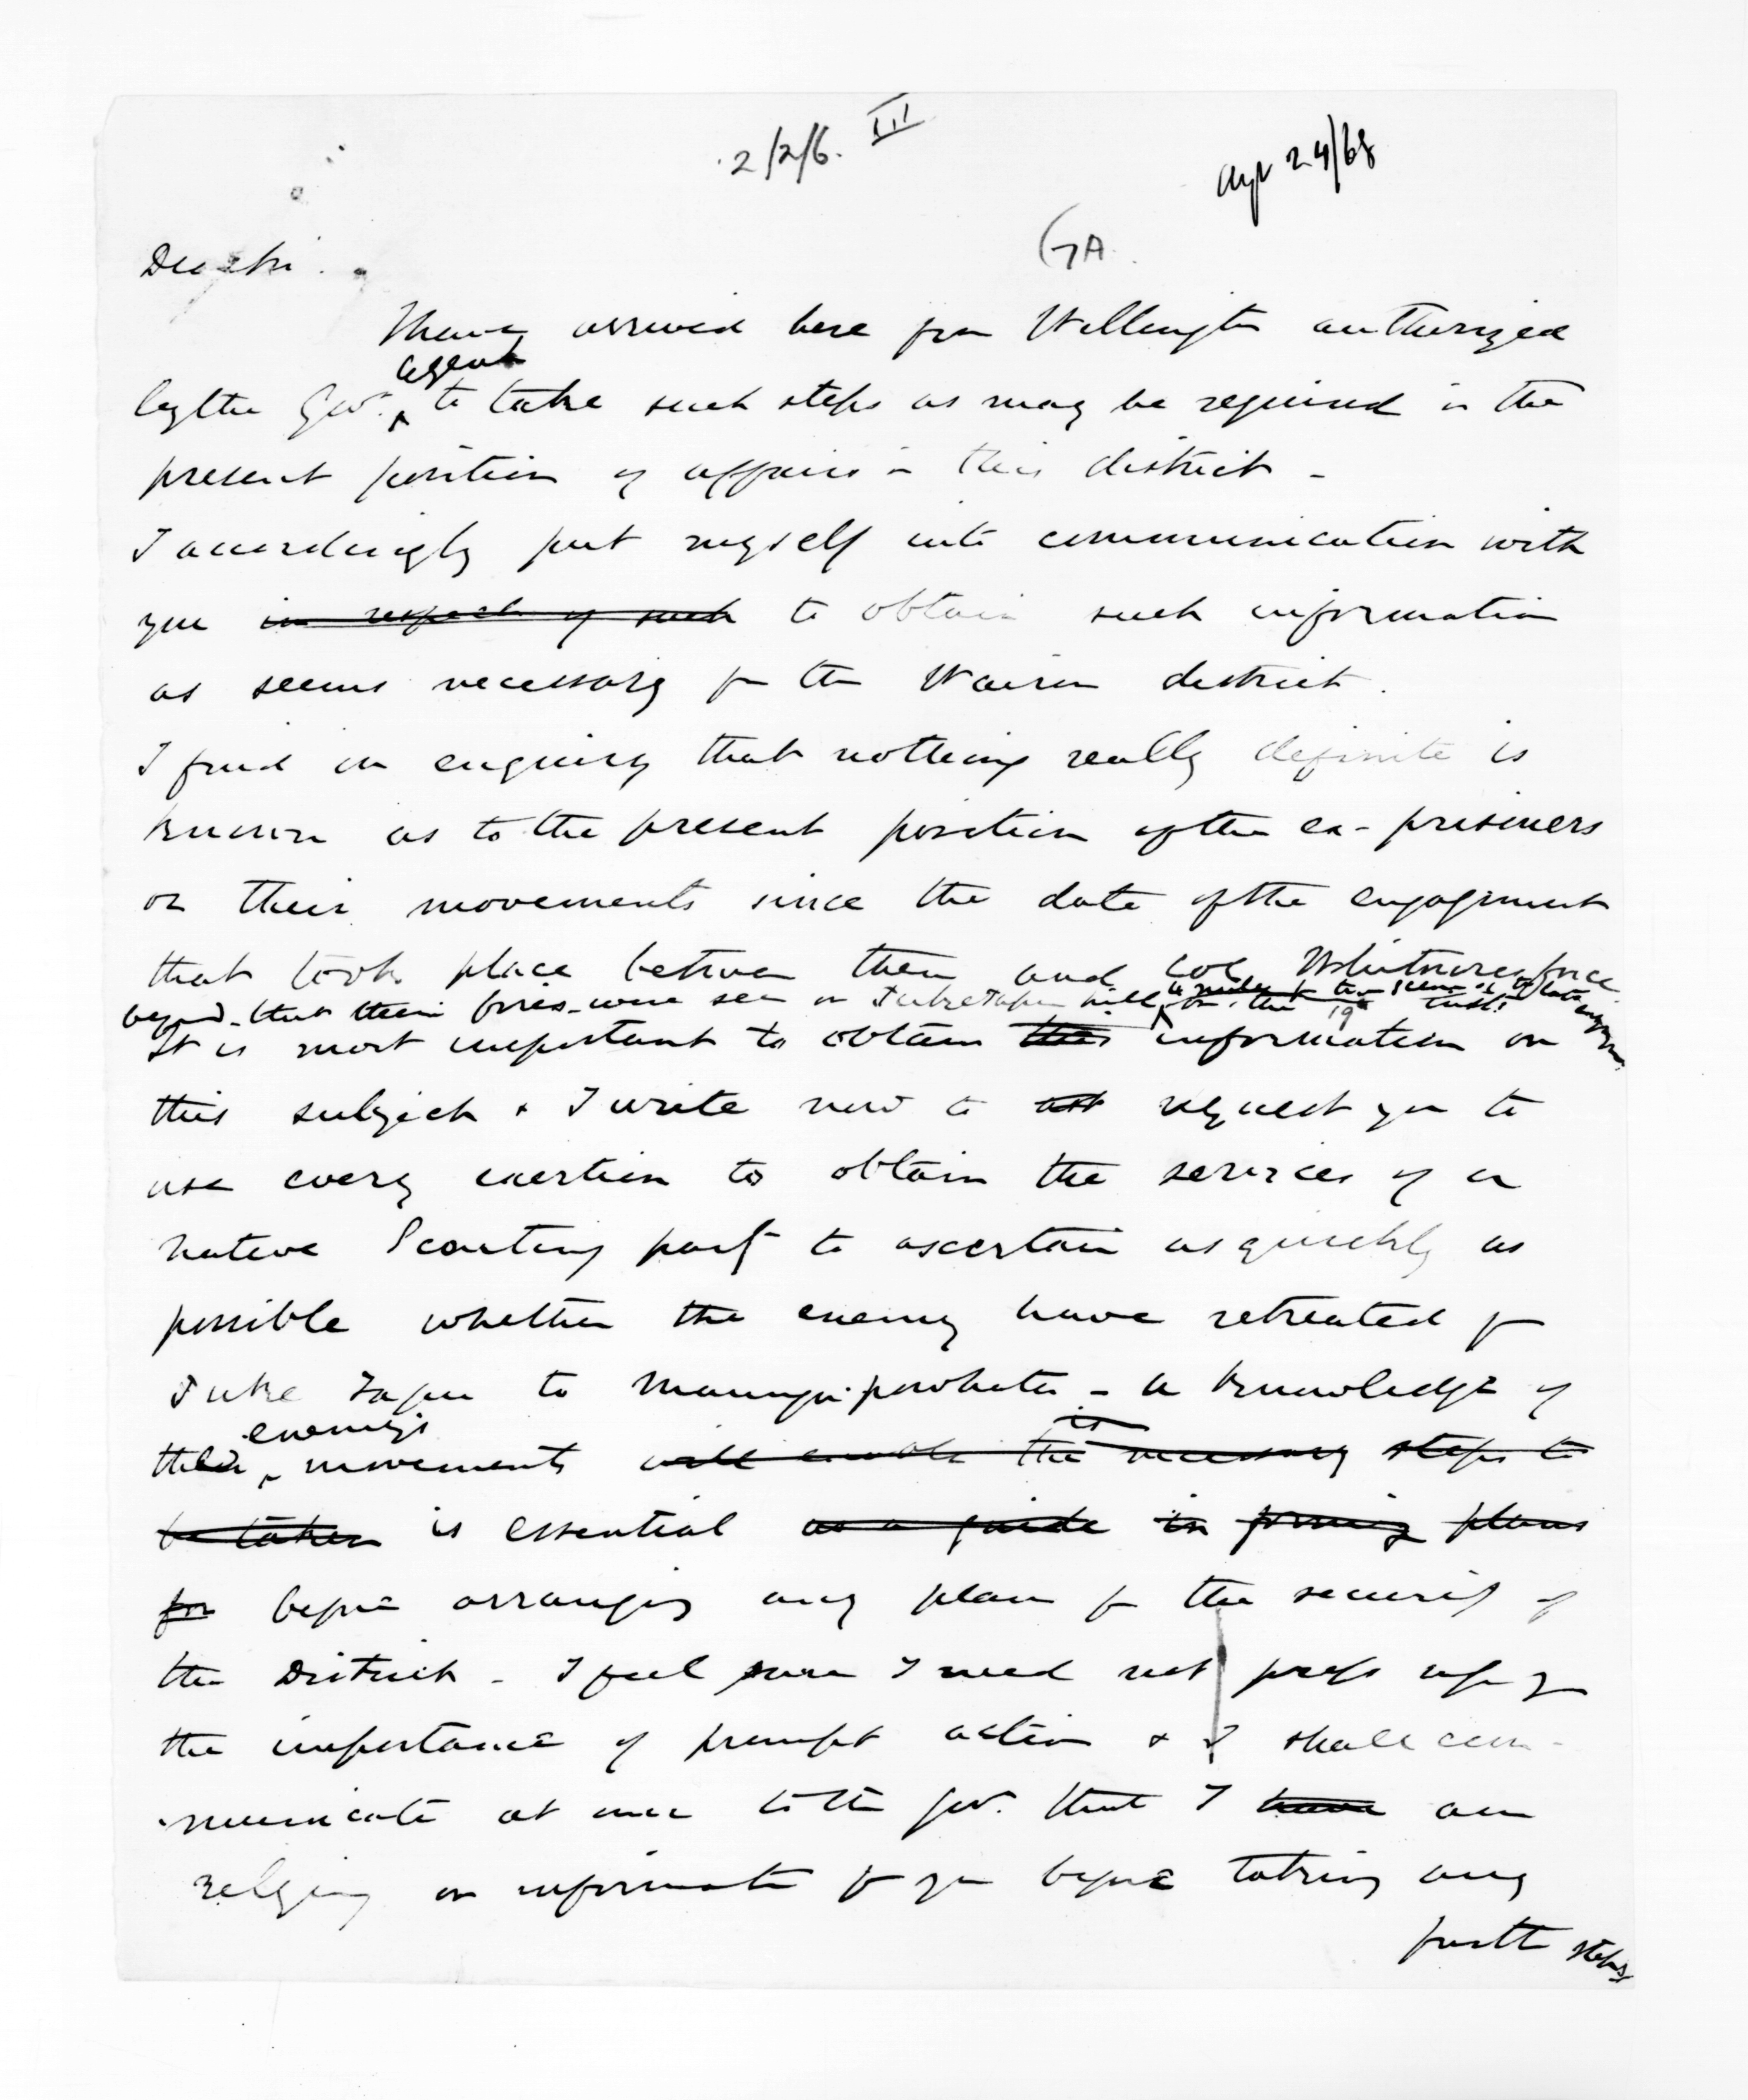 2/2/6. III
Apr 24/68
GA.
Dear Sir.
I have arrived here from Wellington authorized
agent
by the Govt. to take such steps as may be required in the
present position of affairs in this district -
I accordingly put myself into communication with
you in respect of such to obtain such information
as seems necessary for the Wairoa district.
I find on enquiry that nothing really definite is
known as to the present position of the ex-prisoners
or their movements since the date of the engagement
that took place between them and Col. Whitmore's force
beyond that their fires were seen on Puketapu hill on the 19th Inst.
It is most important to obtain this information on
this subject & I write now to ask request you to
use every exertion to obtain the services of a
native Scouting party to ascertain as quickly as
possible whether the enemy have retreated from
Puke Tapu to Maungapowhatu - a knowledge of
enemy's is
their movements will enable the necessary steps to
be taken is essential as a guide in forming plans
for before arranging any plan for the security of
the District - I feel sure I need not press upon you
the importance of prompt action & I shall com-
municate at once to the Govt. that I have am
relying on information from you before taking any
further steps